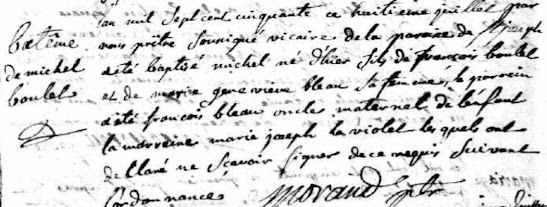 lan mil sept cent cinquante ce huitieme juillet par
batême nous prêtre soussigné vicaire de la paroisse de St joseph
de michel a été baptisé michel né dhier fils de françois boutel
boutel et de marie genevieve bleau sa femme, le parrein
a été françois bleau oncle maternel de lenfant
la marreine marie joseph la violet les quels ont
declaré ne sçavoir signer de ce requis suivant
lordonnance morand ptr